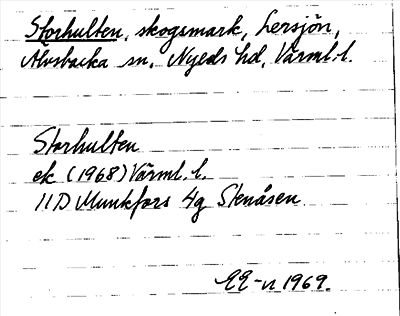 Storhulten, skogsmark, Lersjön,
Älvsbacka sn, Nyeds hd, Värml. l.
Storhulten
ek (1968) Värml. l.
11D Munkfors 4g Stenåsen
EE-n 1969.